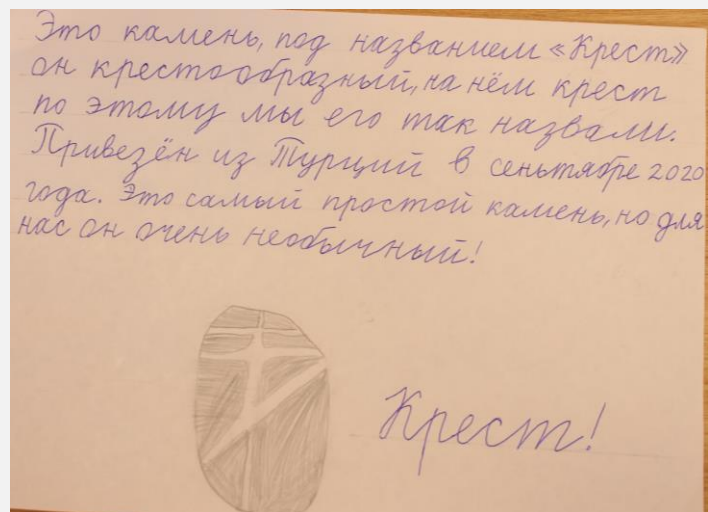 Это камень, под названием «Крест»
он крестообразный, на нём крест
по этому мы его так назвали.
Привезён из Турций в сеньтябре 2020
года. Это самый простой камень, но для
нас он очень необычный!
Крест!